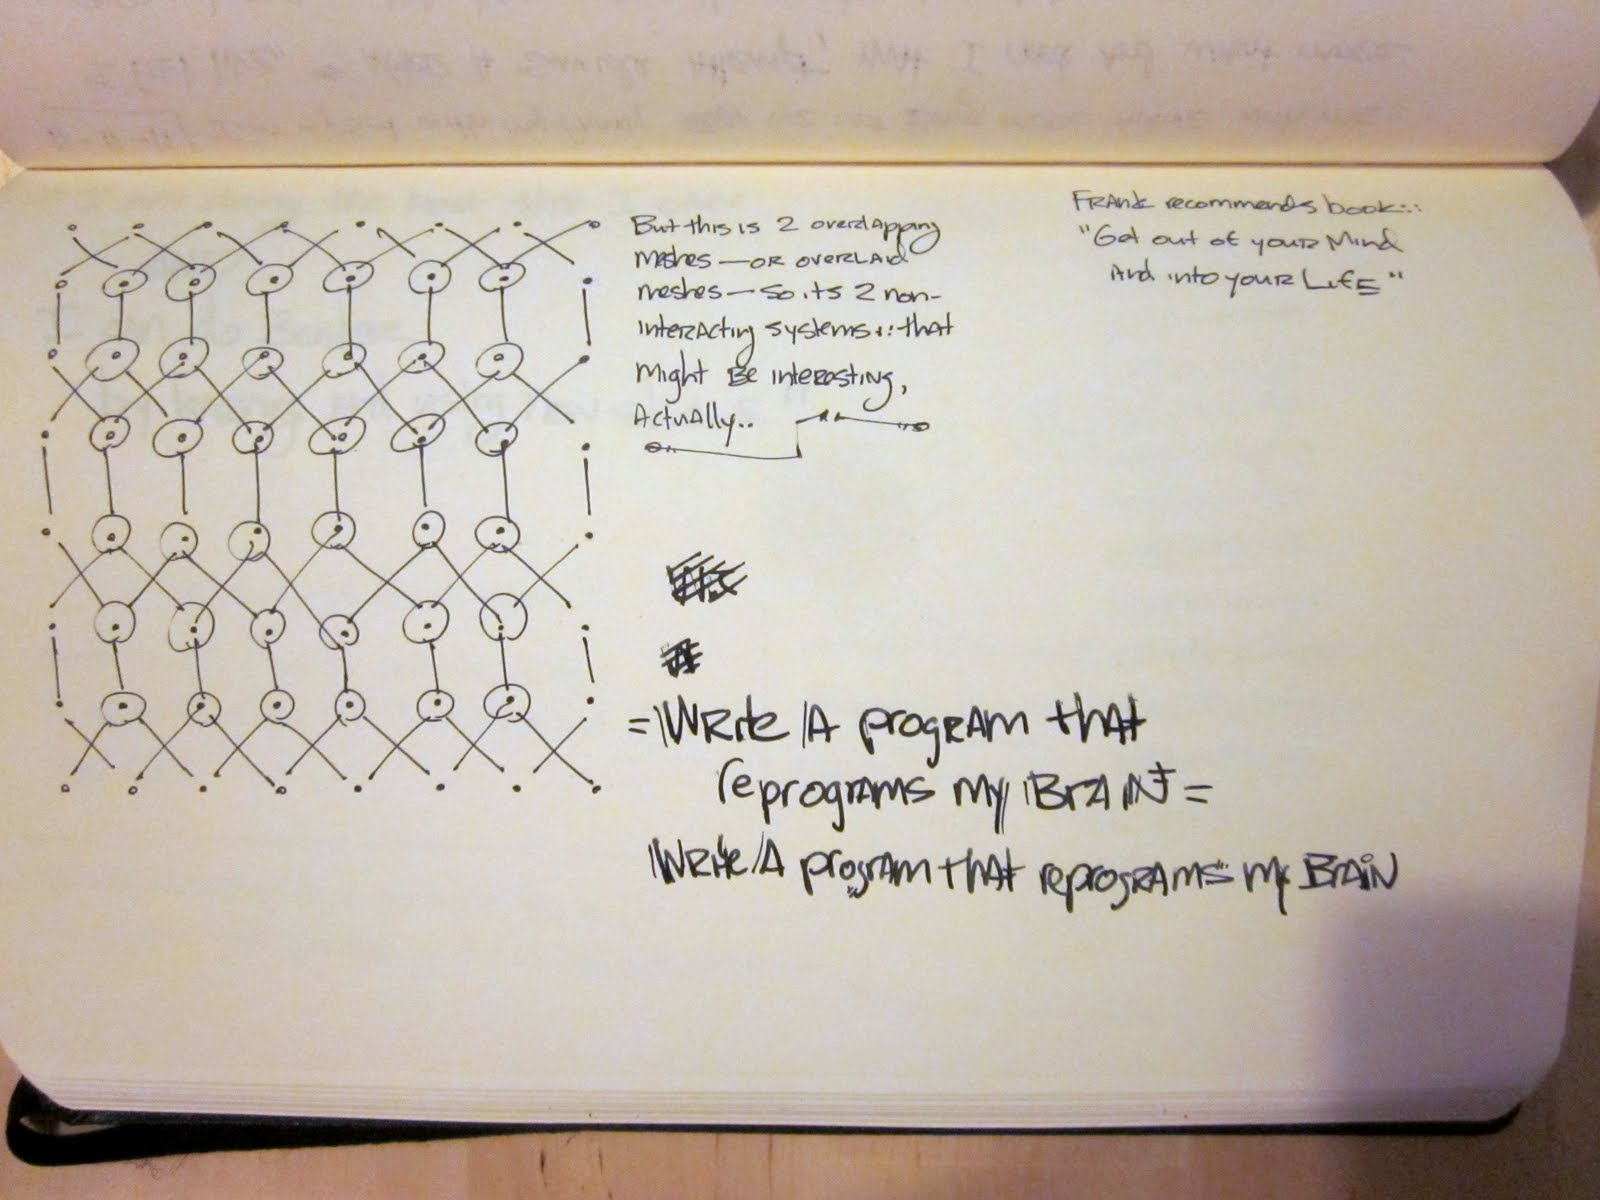 But this is 2 overlapping
meshes — or overlaid
meshes — so its 2 non-
interacting systems::that
might be interesting,
Actually..
Frank recommends book:::
"Get out of your Mind
And into your Life"
=Write A program that
reprograms my Brain=
Write A program that reprograms my Brain